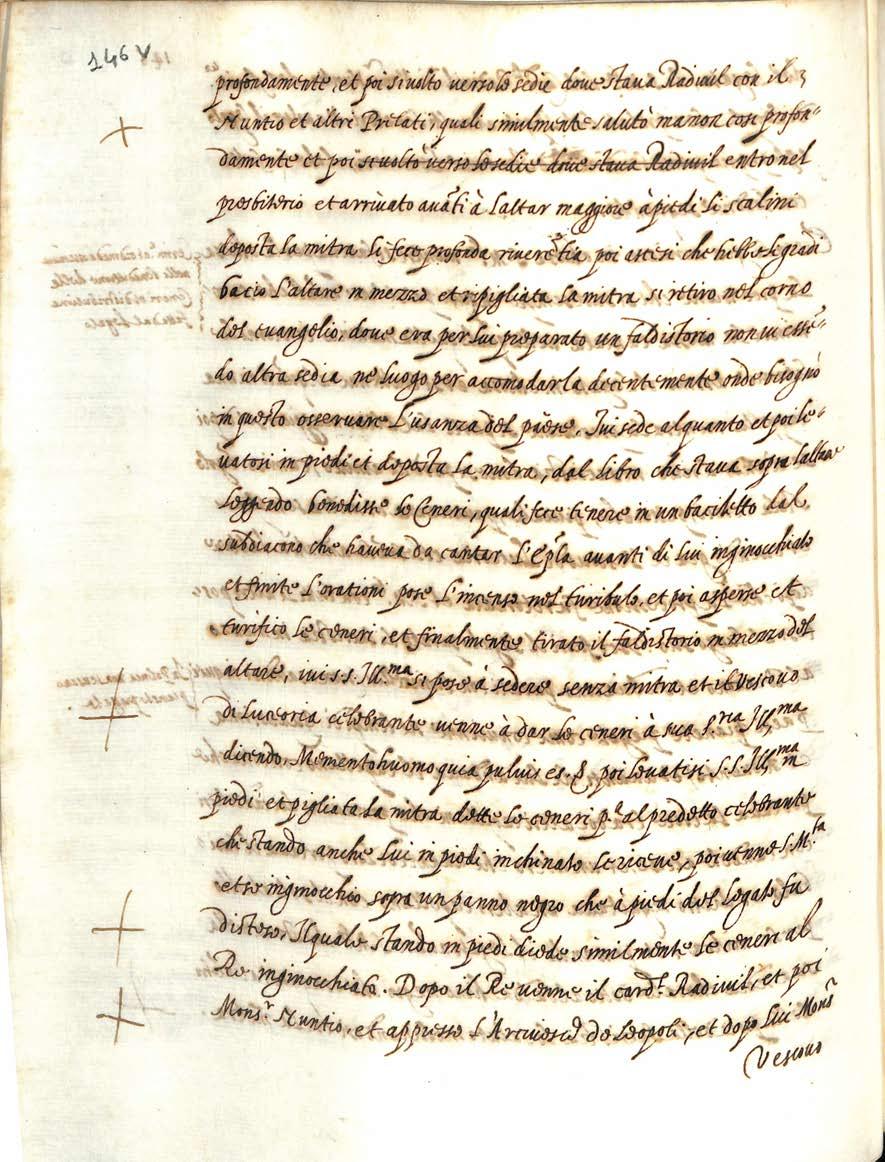 146 v
profondamente, et poi si voltò verso le sedie dove stava Radivil con il
Nuntio et altri Prelati, quali similmente salutò ma non cosi profon-
damente et poi si voltò verso le sedie dove stava Radivil entro nel
presbiterio et arrivato avāti à l'altar maggiore à piedi li scalini
deposta la mitra li fece profonda riverētia poi ascesi che hebbe li gradi
bacio l'altare in mezzo et ripigliata la mitra si retiro nel corno
del evangelio, dove era per lui preparato un faldistorio non vi essē-
do altra sedia ne luogo per accomodarla decentemente onde bisognò
in questo osservare l'usanza del paese. Ivi sede alquanto et poi le-
vatosi in piedi et deposta la mitra, dal libro che stava sopra l'altare
leggendo benedisse le Ceneri, quali fece tenere in un baciletto dal
subdiacono che haveva da cantar l'Ep̄la avanti di lui inginocchiato
et finite l'orationi pose l'incenso nel turibulo, et poi asperse et
turifico le ceneri, et finalmente tirato il faldistorio in mezzo del
altare, ivi s.s. Ill.ma si pose à sedere senza mitra et il Vescovo
di Luceoria celebrante venne à dar le ceneri à sua S.ria Ill.ma
dicendo, Memento huomo quia pulvis es. & poi levatisi S.S. Ill.ma in
piedi et pigliata la mitra dette le ceneri p.ª al predetto celebrante
che stando anche lui in piedi inchinato le riceve, poi venne S. M.ta
et se inginocchio sopra un panno negro che à piedi del Legato fu
disteso, Il quale stando in piedi diede similmente le ceneri al
Re inginocchiato. Dopo il Re venne il card.l Radivil, et poi
Mons.r Nuntio, et appresso l'Arcivesc.o de Leopoli, et dopo lui Mons.r
Vescovo